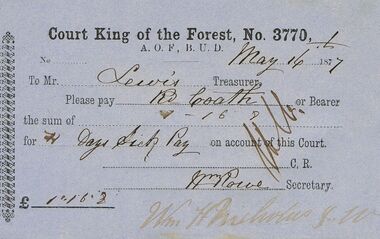 Court King of the Forest, No. 3770,
A. O. F., B. U. D.
No May 16 1877
To Mr. Lewis Treasurer.
Please pay Rd Coath or Bearer
the sum of 1-16-8
for Days Sick Pay on account of this Court.
C. R.
Wm Rowe Secretary.
£ 1-16-8
Wm H Nicholas